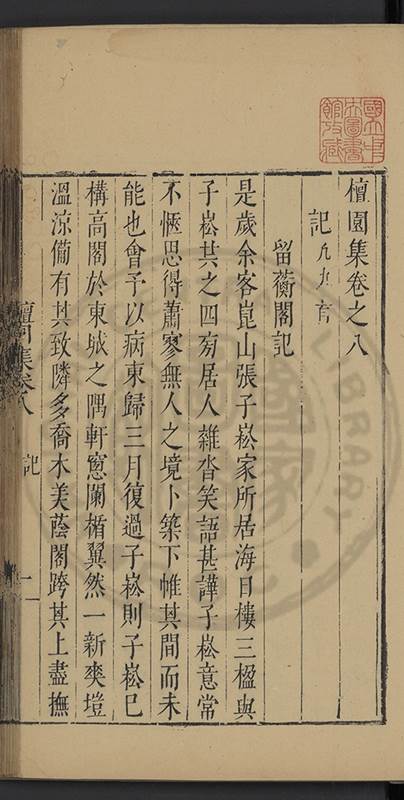 檀園集卷之八
記凡九首
留蘅閣記
是歲余客崑山張子崧家所居海日樓三楹與
子崧共之四旁居人雜沓笑語甚譁子崧意常
不愜思得蕭寥無人之境卜築下帷其間而未
能也會予以病東歸三月復過子崧則子崧已
構高閣於東城之隅軒窻闌楯翼然一新爽塏
溫涼備有其致隣多喬木美蔭閣跨其上盡撫
檀園集卷八
記
一
國立中
央圖書
館收藏